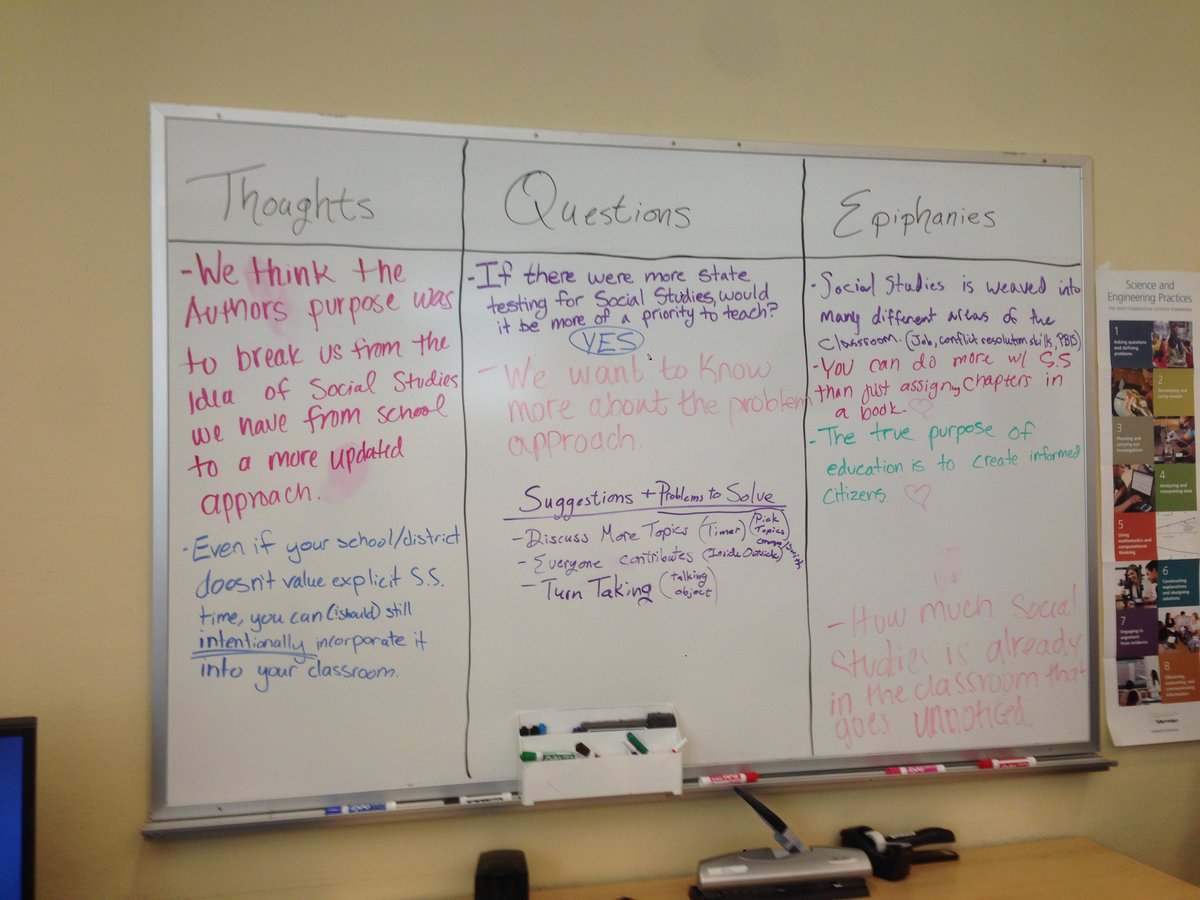 Thoughts
-We think the
Authors purpose was
to break us from the
Idea of Social Studies
we have from school
to a more updated
approach.
-Even if your school/district
doesn't value explicit S.S.
time, you can (should) still
intentionally incorporate it
into your classroom.
Questions
-If there were more state
testing for Social Studies, would
it be more of a priority to teach?
YES
-We want to know
more about the problem
approach.
Suggestions + Problems to Solve
-Discuss More Topics (Timer) (Pick Topics
-Everyone contributes (Inside Outside)
-Turn Taking (talking object)
Epiphanies
-Social Studies is weaved into
many different areas of the
classroom. (Job, conflict resolution skills, PBIS)
-You can do more w/ S.S
than just assigning chapters in
a book.
-The true purpose of
education is to create informed
citizens
-How much Social
Studies is already
in the classroom that
goes unnoticed.
Science and
Engineering Practices
1
Asking questions
and defining
problems
2
Developing and
using models
3
Planning and
carrying out
investigations
4
Analyzing and
interpreting data
5
Using
mathematics and
computational
thinking
6
Constructing
explanations
and designing
solutions
7
Engaging in
argument
from evidence
8
Obtaining,
evaluating, and
communicating
information
Vernier